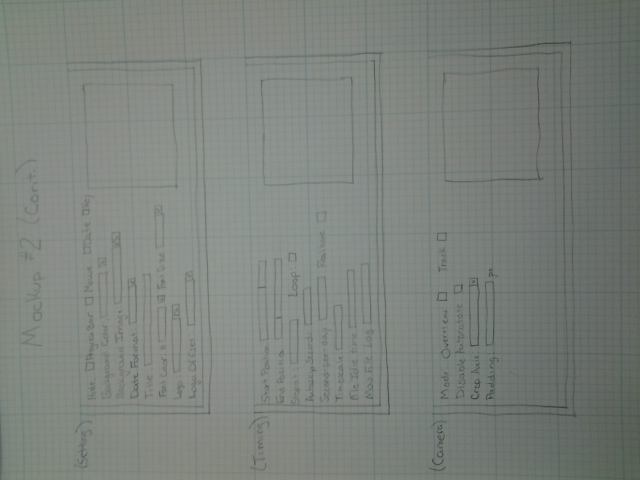 Mockup #2 (Cont.)
(Setting)
Hide: Progress Bar Mouse Date Key
Background Color:
Background Image:
Date Format:
Title:
Font Color: # Font Size:
Logo:
Logo Offset:
(Timing)
Start Position:
Position:
Stop at: Loop:
Auto skip Seconds:
Seconds per day: Realtime
Timescale:
File Idle time:
Max File Lag:
(Camera)
Mode: Overview Track
Disable Autorotate
Crop Axis:
Padding: px